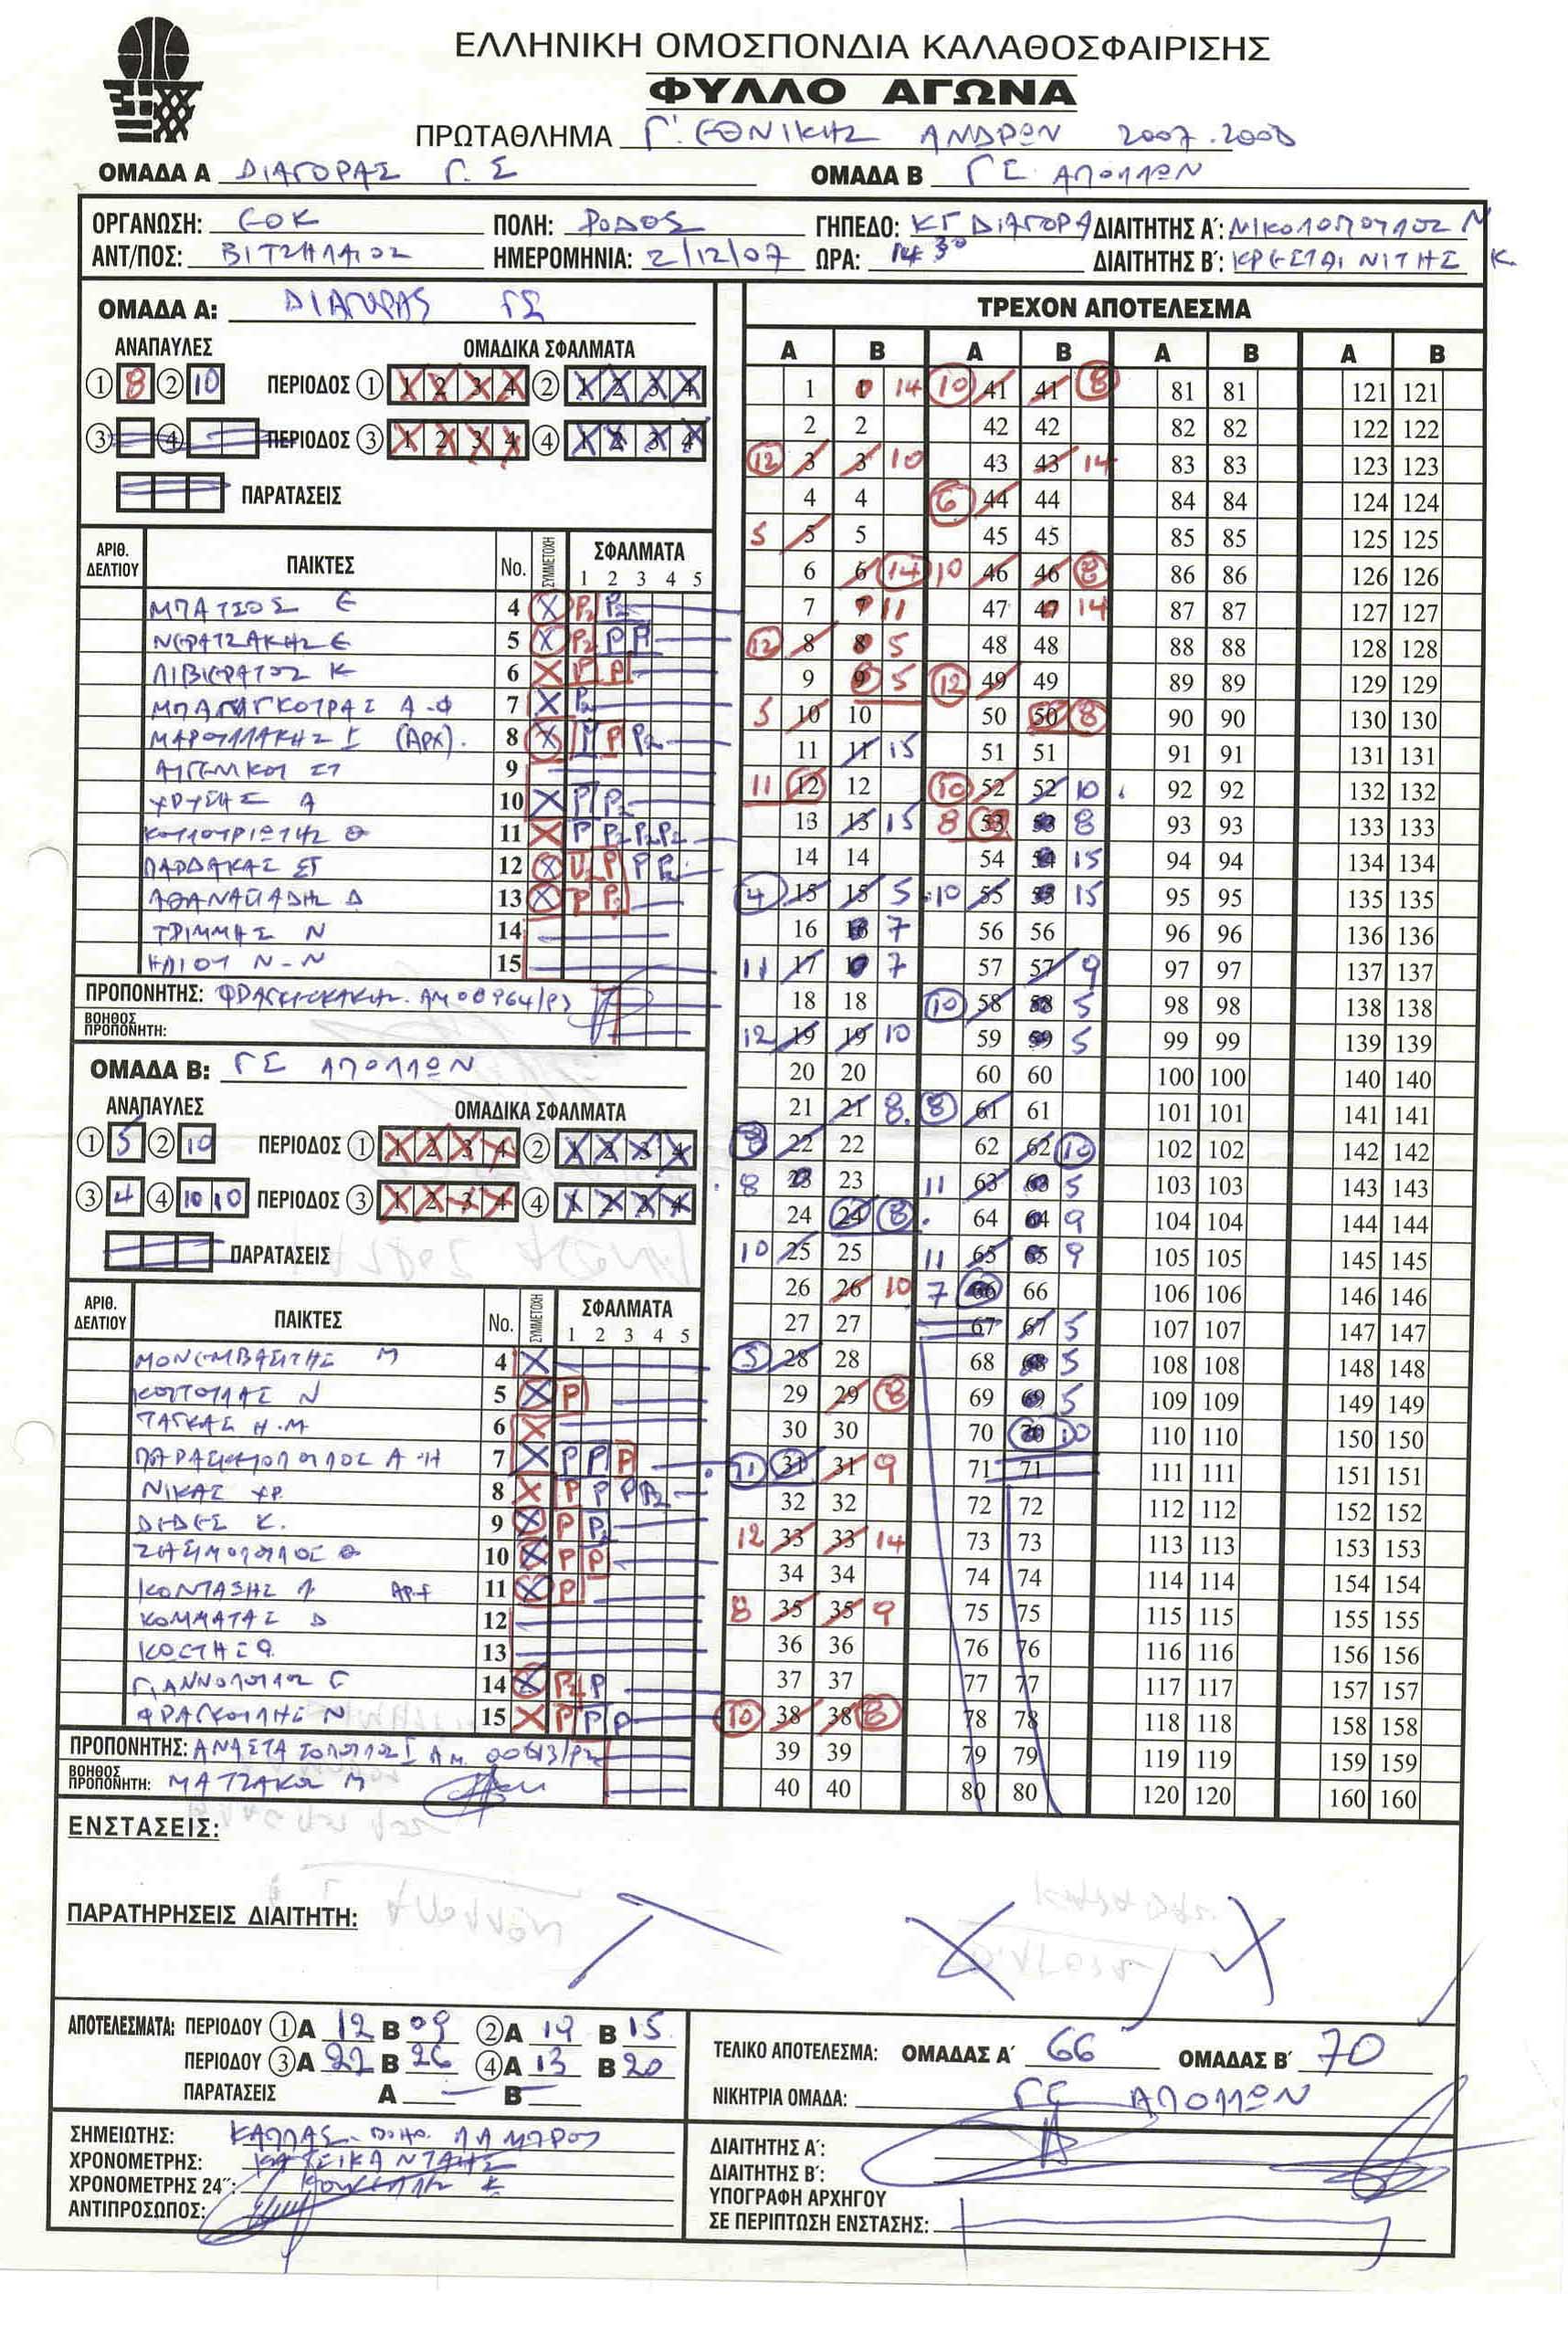 ΕΛΛΗΝΙΚΗ ΟΜΟΣΠΟΝΔΙΑ ΚΑΛΑΘΟΣΦΑΙΡΙΣΗΣ
ΦΥΛΛΟ ΑΓΩΝΑ
ΠΡΩΤΑΘΛΗΜΑ Γ' ΕΘΝΙΚΗΣ ΑΝΔΡΩΝ 2007-2008
ΟΜΑΔΑ Α ΔΙΑΓΟΡΑΣ Γ.Σ ΟΜΑΔΑ Β ΓΣ ΑΠΟΛΛΩΝ
ΟΡΓΑΝΩΣΗ: ΕΟΚ ΠΟΛΗ: ΡΟΔΟΣ ΓΗΠΕΔΟ: ΚΓ ΔΙΑΓΟΡΑ ΔΙΑΙΤΗΤΗΣ Α΄: ΝΙΚΟΛΟΠΟΥΛΟΣ Ν
ΑΝΤ/ΠΟΣ: ΒΙΤΖΗΛΑΙΟΣ ΗΜΕΡΟΜΗΝΙΑ: 2/12/07 ΩΡΑ: 14 30 ΔΙΑΙΤΗΤΗΣ Β΄: ΚΡΕΣΤΑΙΝΙΤΗΣ Κ.
ΟΜΑΔΑ Α: ΔΙΑΓΟΡΑΣ ΓΣ
ΑΝΑΠΑΥΛΕΣ ΟΜΑΔΙΚΑ ΣΦΑΛΜΑΤΑ
1 8 2 10 ΠΕΡΙΟΔΟΣ 1 1 2 3 4 2 1 2 3 4
3 4 ΠΕΡΙΟΔΟΣ 3 1 2 3 4 4 1 2 3 4
ΠΑΡΑΤΑΣΕΙΣ
ΑΡΙΘ. ΔΕΛΤΙΟΥ ΠΑΙΚΤΕΣ No. ΣΥΜΜΕΤΟΧΗ ΣΦΑΛΜΑΤΑ
1 2 3 4 5
ΜΠΑΤΣΟΣ Ε 4 X P2 P2
ΝΕΡΑΤΖΑΚΗΣ Ε 5 X P2 P P
ΛΙΒΥΕΡΑΤΟΣ Κ 6 X P P
7 X P2
ΜΑΡΟΥΛΛΑΚΗΣ Ι (ΑΡΧ). 8 X P P2
9
ΧΡΥΣΗΣ Α 10 X P P2
ΚΟΥΛΟΥΡΙΩΤΗΣ Θ 11 X P P2 P2 P2
ΠΑΡΔΑΚΑΣ ΣΤ 12 X U2 P P P2
ΑΘΑΝΑΣΙΑΔΗΣ Δ 13 X P P2
ΤΡΙΜΜΗΣ Ν 14
ΗΛΙΟΥ Ν-Ν 15
ΠΡΟΠΟΝΗΤΗΣ:
ΒΟΗΘΟΣ ΠΡΟΠΟΝΗΤΗ:
ΟΜΑΔΑ Β: ΓΣ ΑΠΟΛΛΩΝ
ΑΝΑΠΑΥΛΕΣ ΟΜΑΔΙΚΑ ΣΦΑΛΜΑΤΑ
1 5 2 10 ΠΕΡΙΟΔΟΣ 1 1 2 3 4 2 1 2 3 4
3 4 4 10 10 ΠΕΡΙΟΔΟΣ 3 1 2 3 4 4 1 2 3 4
ΠΑΡΑΤΑΣΕΙΣ
ΑΡΙΘ. ΔΕΛΤΙΟΥ ΠΑΙΚΤΕΣ No. ΣΥΜΜΕΤΟΧΗ ΣΦΑΛΜΑΤΑ
1 2 3 4 5
ΜΟΝΕΜΒΑΣΙΤΗΣ Μ 4 X
Ν 5 X P
ΤΑΓΚΑΣ Η.Μ 6 X
ΠΑΡΑΣΚΕΥΟΠΟΥΛΟΣ Α-Η 7 X P P P
ΝΙΚΑΣ ΧΡ. 8 X P P P P2
ΔΕΔΕΣ Κ. 9 X P P2
ΖΗΣΙΜΟΠΟΥΛΟΣ Θ 10 X P P
ΚΟΝΤΑΞΗΣ Λ ΑΡΧ 11 X P
ΚΟΜΜΑΤΑΣ Δ 12
ΚΩΣΤΗΣ Θ. 13
ΓΙΑΝΝΟΠΟΥΛΟΣ Γ 14 X P P
ΦΡΑΓΚΟΥΛΗΣ Ν 15 X P P P
ΠΡΟΠΟΝΗΤΗΣ: ΑΝΑΣΤΑΣΟΠΟΥΛΟΣ Ι
ΒΟΗΘΟΣ ΠΡΟΠΟΝΗΤΗ: ΜΑΤΖΑΚΟΣ Μ
ΤΡΕΧΟΝ ΑΠΟΤΕΛΕΣΜΑ
Α Β Α Β Α Β Α Β
1 1 14 10 41 41 8 81 81 121 121
2 2 42 42 82 82 122 122
12 3 3 10 43 43 14 83 83 123 123
4 4 6 44 44 84 84 124 124
5 5 5 45 45 85 85 125 125
6 6 14 10 46 46 8 86 86 126 126
7 7 11 47 47 14 87 87 127 127
12 8 8 5 48 48 88 88 128 128
9 9 5 12 49 49 89 89 129 129
5 10 10 50 50 8 90 90 130 130
11 11 15 51 51 91 91 131 131
11 12 12 10 52 52 10 92 92 132 132
13 13 15 8 53 53 8 93 93 133 133
14 14 54 54 15 94 94 134 134
4 15 15 5 10 55 55 15 95 95 135 135
16 16 7 56 56 96 96 136 136
11 17 17 7 57 57 9 97 97 137 137
18 18 10 58 58 5 98 98 138 138
12 19 19 10 59 59 5 99 99 139 139
20 20 60 60 100 100 140 140
21 21 8 8 61 61 101 101 141 141
8 22 22 62 62 10 102 102 142 142
8 23 23 11 63 63 5 103 103 143 143
24 24 8 64 64 9 104 104 144 144
10 25 25 11 65 65 9 105 105 145 145
26 26 10 7 66 66 106 106 146 146
27 27 67 67 5 107 107 147 147
5 28 28 68 68 5 108 108 148 148
29 29 8 69 69 5 109 109 149 149
30 30 70 70 10 110 110 150 150
11 31 31 9 71 71 111 111 151 151
32 32 72 72 112 112 152 152
12 33 33 14 73 73 113 113 153 153
34 34 74 74 114 114 154 154
8 35 35 9 75 75 115 115 155 155
36 36 76 76 116 116 156 156
37 37 77 77 117 117 157 157
10 38 38 8 78 78 118 118 158 158
39 39 79 79 119 119 159 159
40 40 80 80 120 120 160 160
ΕΝΣΤΑΣΕΙΣ:
ΠΑΡΑΤΗΡΗΣΕΙΣ ΔΙΑΙΤΗΤΗ:
ΑΠΟΤΕΛΕΣΜΑΤΑ: ΠΕΡΙΟΔΟΥ 1 Α 12 Β 09 2 Α 19 Β 15
ΠΕΡΙΟΔΟΥ 3 Α 22 Β 26 4 Α 13 Β 20
ΠΑΡΑΤΑΣΕΙΣ Α — Β —
ΤΕΛΙΚΟ ΑΠΟΤΕΛΕΣΜΑ: ΟΜΑΔΑΣ Α΄ 66 ΟΜΑΔΑΣ Β΄ 70
ΝΙΚΗΤΡΙΑ ΟΜΑΔΑ: ΓΣ ΑΠΟΛΛΩΝ
ΣΗΜΕΙΩΤΗΣ:
ΧΡΟΝΟΜΕΤΡΗΣ:
ΧΡΟΝΟΜΕΤΡΗΣ 24΄΄:
ΑΝΤΙΠΡΟΣΩΠΟΣ:
ΔΙΑΙΤΗΤΗΣ Α΄:
ΔΙΑΙΤΗΤΗΣ Β΄:
ΥΠΟΓΡΑΦΗ ΑΡΧΗΓΟΥ
ΣΕ ΠΕΡΙΠΤΩΣΗ ΕΝΣΤΑΣΗΣ: